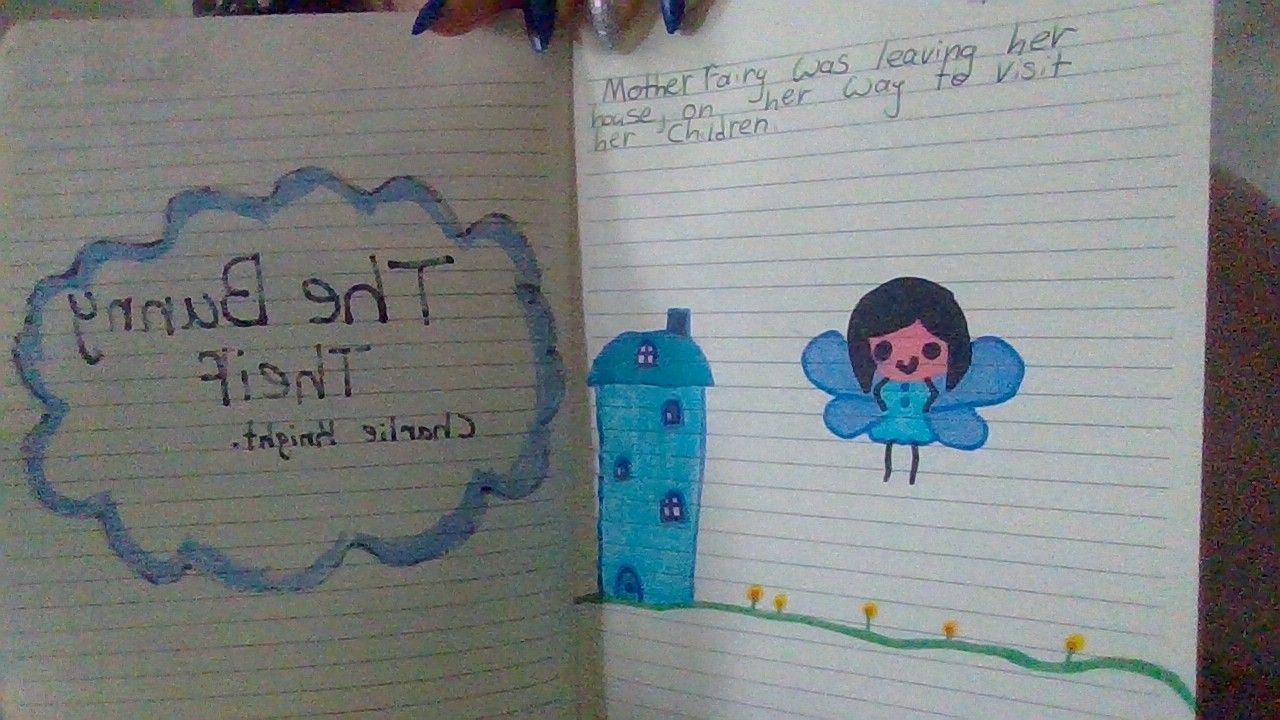 The Bunny
Theif
Charlie Knight.
Mother Fairy was leaving her
house, on her way to visit
her children.